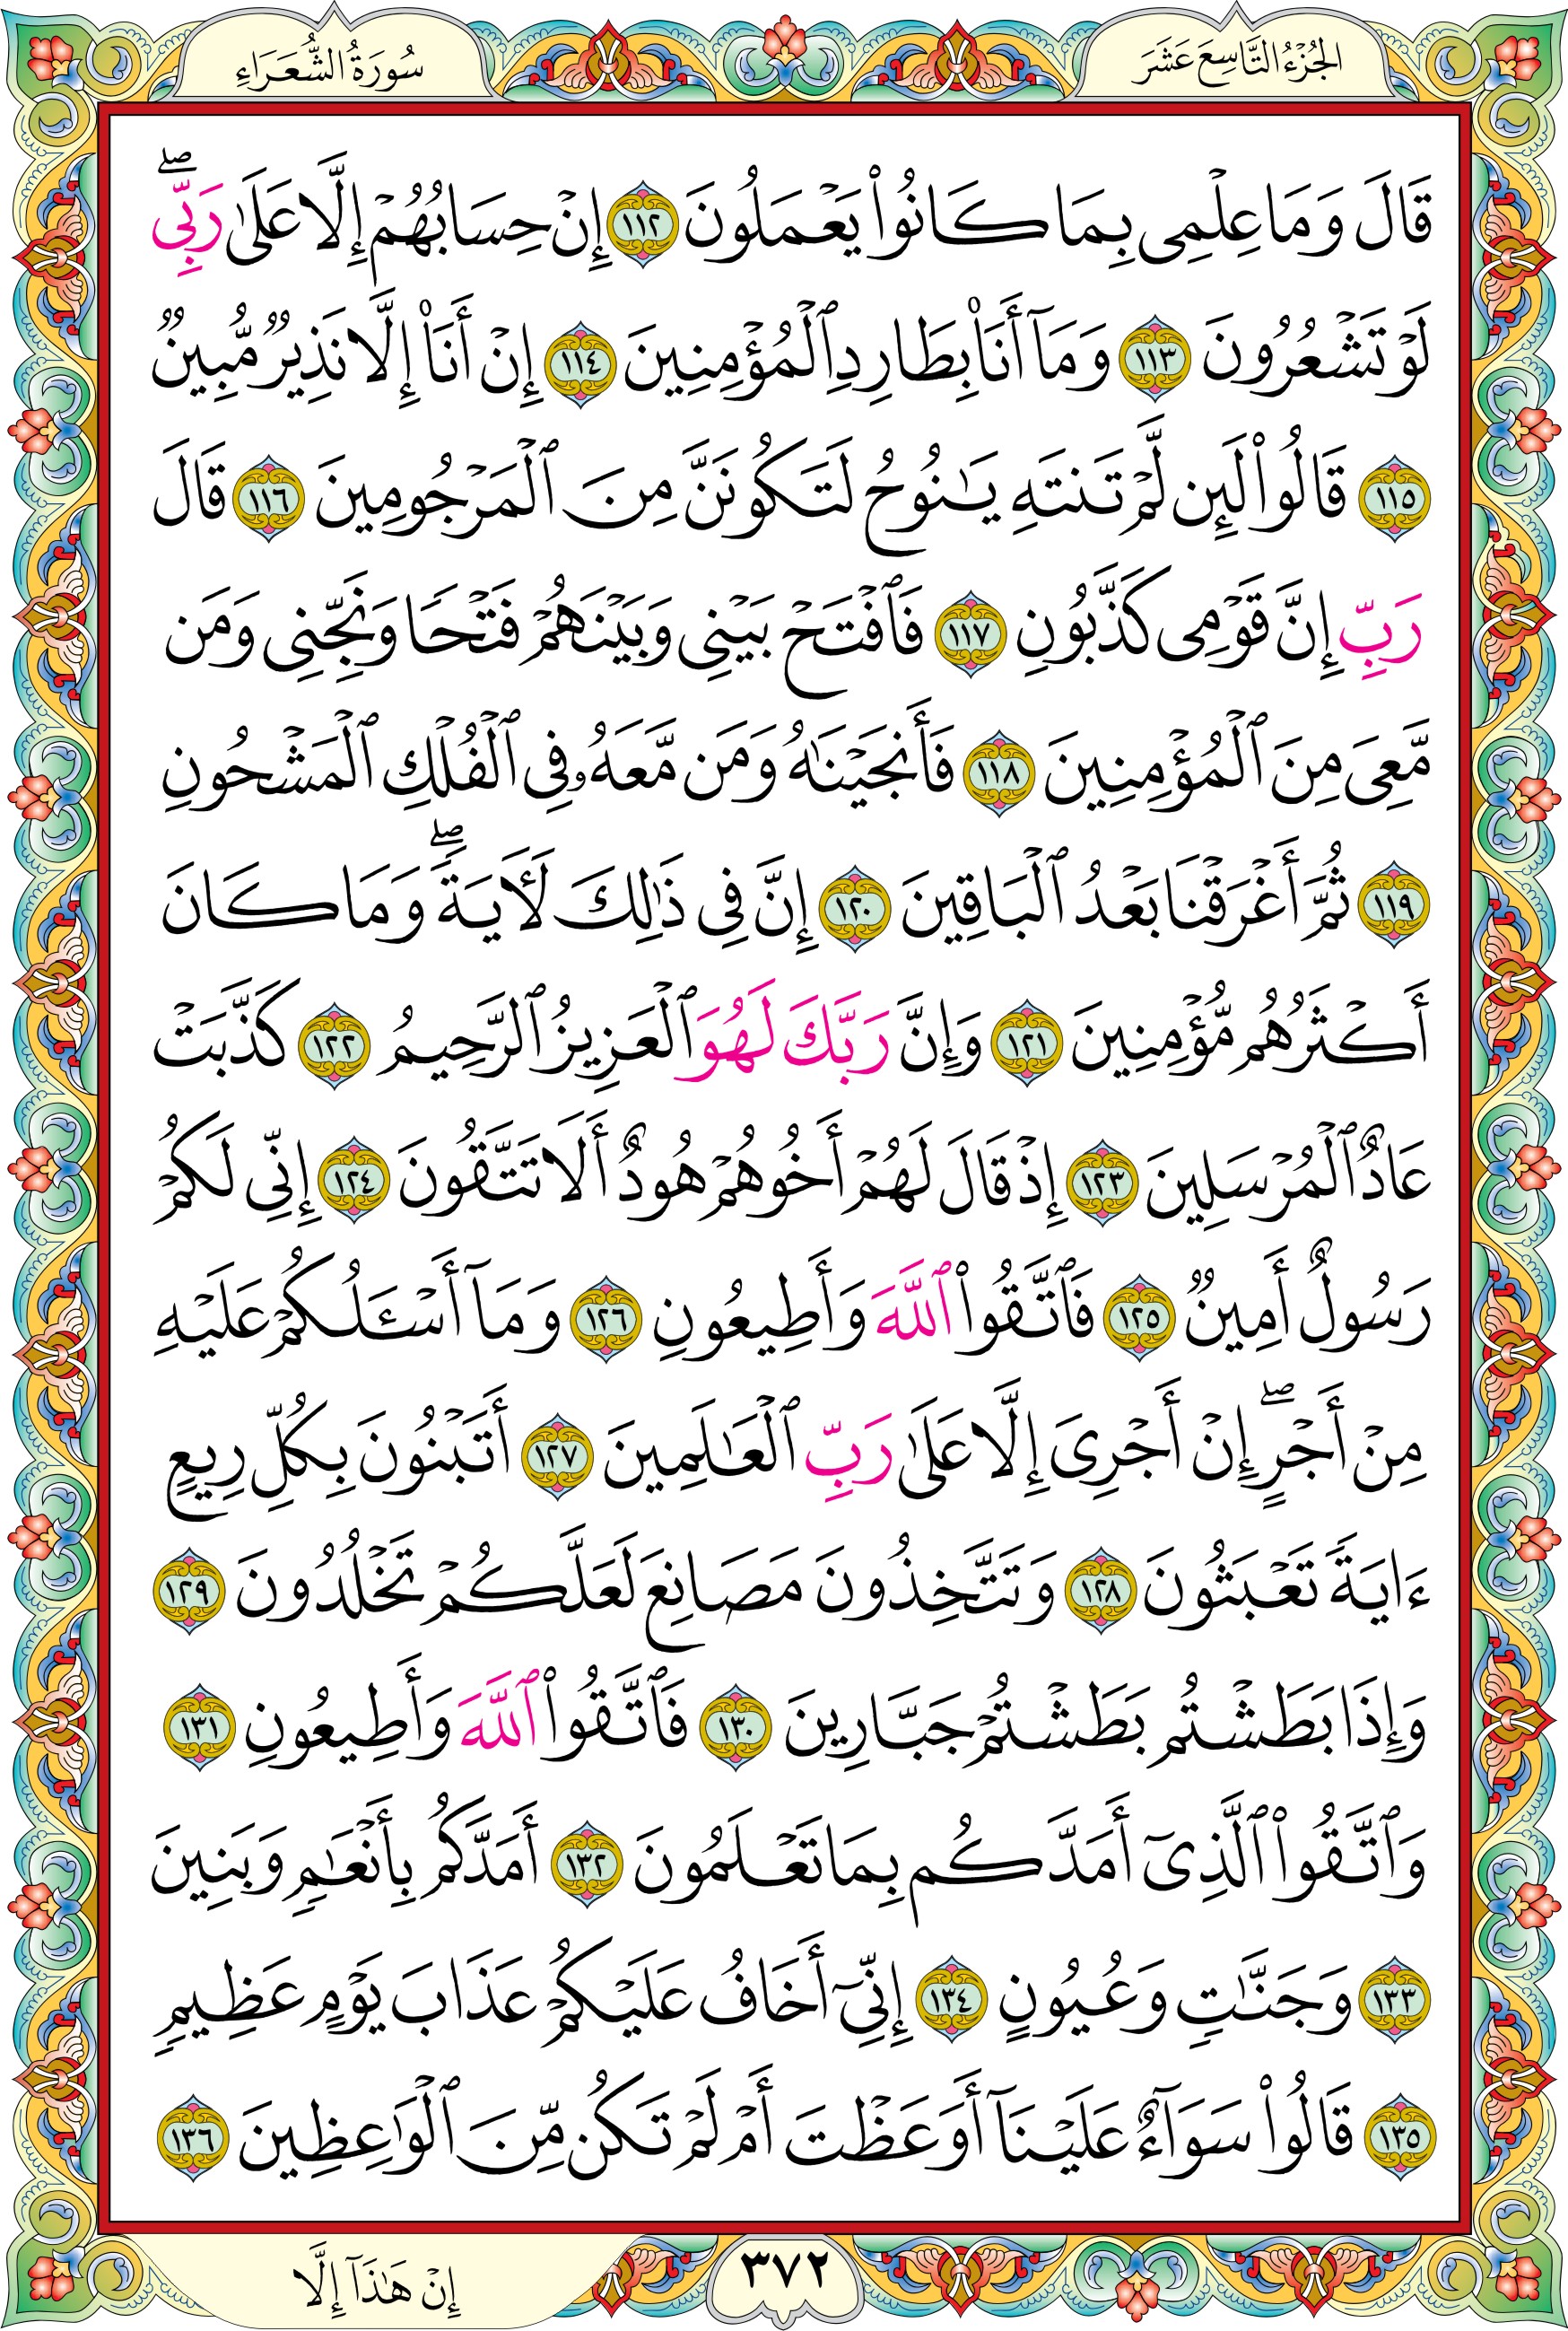 الجُزْءُ التَّاسِعَ عَشَرَ
سُورَةُ الشُّعَرَاءِ
قَالَ وَمَا عِلْمِى بِمَا كَانُوا۟ يَعْمَلُونَ ١١٢ إِنْ حِسَابُهُمْ إِلَّا عَلَىٰ رَبِّى ۖ
لَوْ تَشْعُرُونَ ١١٣ وَمَآ أَنَا۠ بِطَارِدِ ٱلْمُؤْمِنِينَ ١١٤ إِنْ أَنَا۠ إِلَّا نَذِيرٌ مُّبِينٌ
١١٥ قَالُوا۟ لَئِن لَّمْ تَنتَهِ يَـٰنُوحُ لَتَكُونَنَّ مِنَ ٱلْمَرْجُومِينَ ١١٦ قَالَ
رَبِّ إِنَّ قَوْمِى كَذَّبُونِ ١١٧ فَٱفْتَحْ بَيْنِى وَبَيْنَهُمْ فَتْحًا وَنَجِّنِى وَمَن
مَّعِىَ مِنَ ٱلْمُؤْمِنِينَ ١١٨ فَأَنجَيْنَـٰهُ وَمَن مَّعَهُۥ فِى ٱلْفُلْكِ ٱلْمَشْحُونِ
١١٩ ثُمَّ أَغْرَقْنَا بَعْدُ ٱلْبَاقِينَ ١٢٠ إِنَّ فِى ذَٰلِكَ لَـَٔايَةً ۖ وَمَا كَانَ
أَكْثَرُهُم مُّؤْمِنِينَ ١٢١ وَإِنَّ رَبَّكَ لَهُوَ ٱلْعَزِيزُ ٱلرَّحِيمُ ١٢٢ كَذَّبَتْ
عَادٌ ٱلْمُرْسَلِينَ ١٢٣ إِذْ قَالَ لَهُمْ أَخُوهُمْ هُودٌ أَلَا تَتَّقُونَ ١٢٤ إِنِّى لَكُمْ
رَسُولٌ أَمِينٌ ١٢٥ فَٱتَّقُوا۟ ٱللَّهَ وَأَطِيعُونِ ١٢٦ وَمَآ أَسْـَٔلُكُمْ عَلَيْهِ
مِنْ أَجْرٍ ۖ إِنْ أَجْرِىَ إِلَّا عَلَىٰ رَبِّ ٱلْعَـٰلَمِينَ ١٢٧ أَتَبْنُونَ بِكُلِّ رِيعٍ
ءَايَةً تَعْبَثُونَ ١٢٨ وَتَتَّخِذُونَ مَصَانِعَ لَعَلَّكُمْ تَخْلُدُونَ ١٢٩
وَإِذَا بَطَشْتُم بَطَشْتُمْ جَبَّارِينَ ١٣٠ فَٱتَّقُوا۟ ٱللَّهَ وَأَطِيعُونِ ١٣١
وَٱتَّقُوا۟ ٱلَّذِىٓ أَمَدَّكُم بِمَا تَعْلَمُونَ ١٣٢ أَمَدَّكُم بِأَنْعَـٰمٍ وَبَنِينَ
١٣٣ وَجَنَّـٰتٍ وَعُيُونٍ ١٣٤ إِنِّىٓ أَخَافُ عَلَيْكُمْ عَذَابَ يَوْمٍ عَظِيمٍ
١٣٥ قَالُوا۟ سَوَآءٌ عَلَيْنَآ أَوَعَظْتَ أَمْ لَمْ تَكُن مِّنَ ٱلْوَٰعِظِينَ ١٣٦
٣٧٢
إِنْ هَـٰذَآ إِلَّا